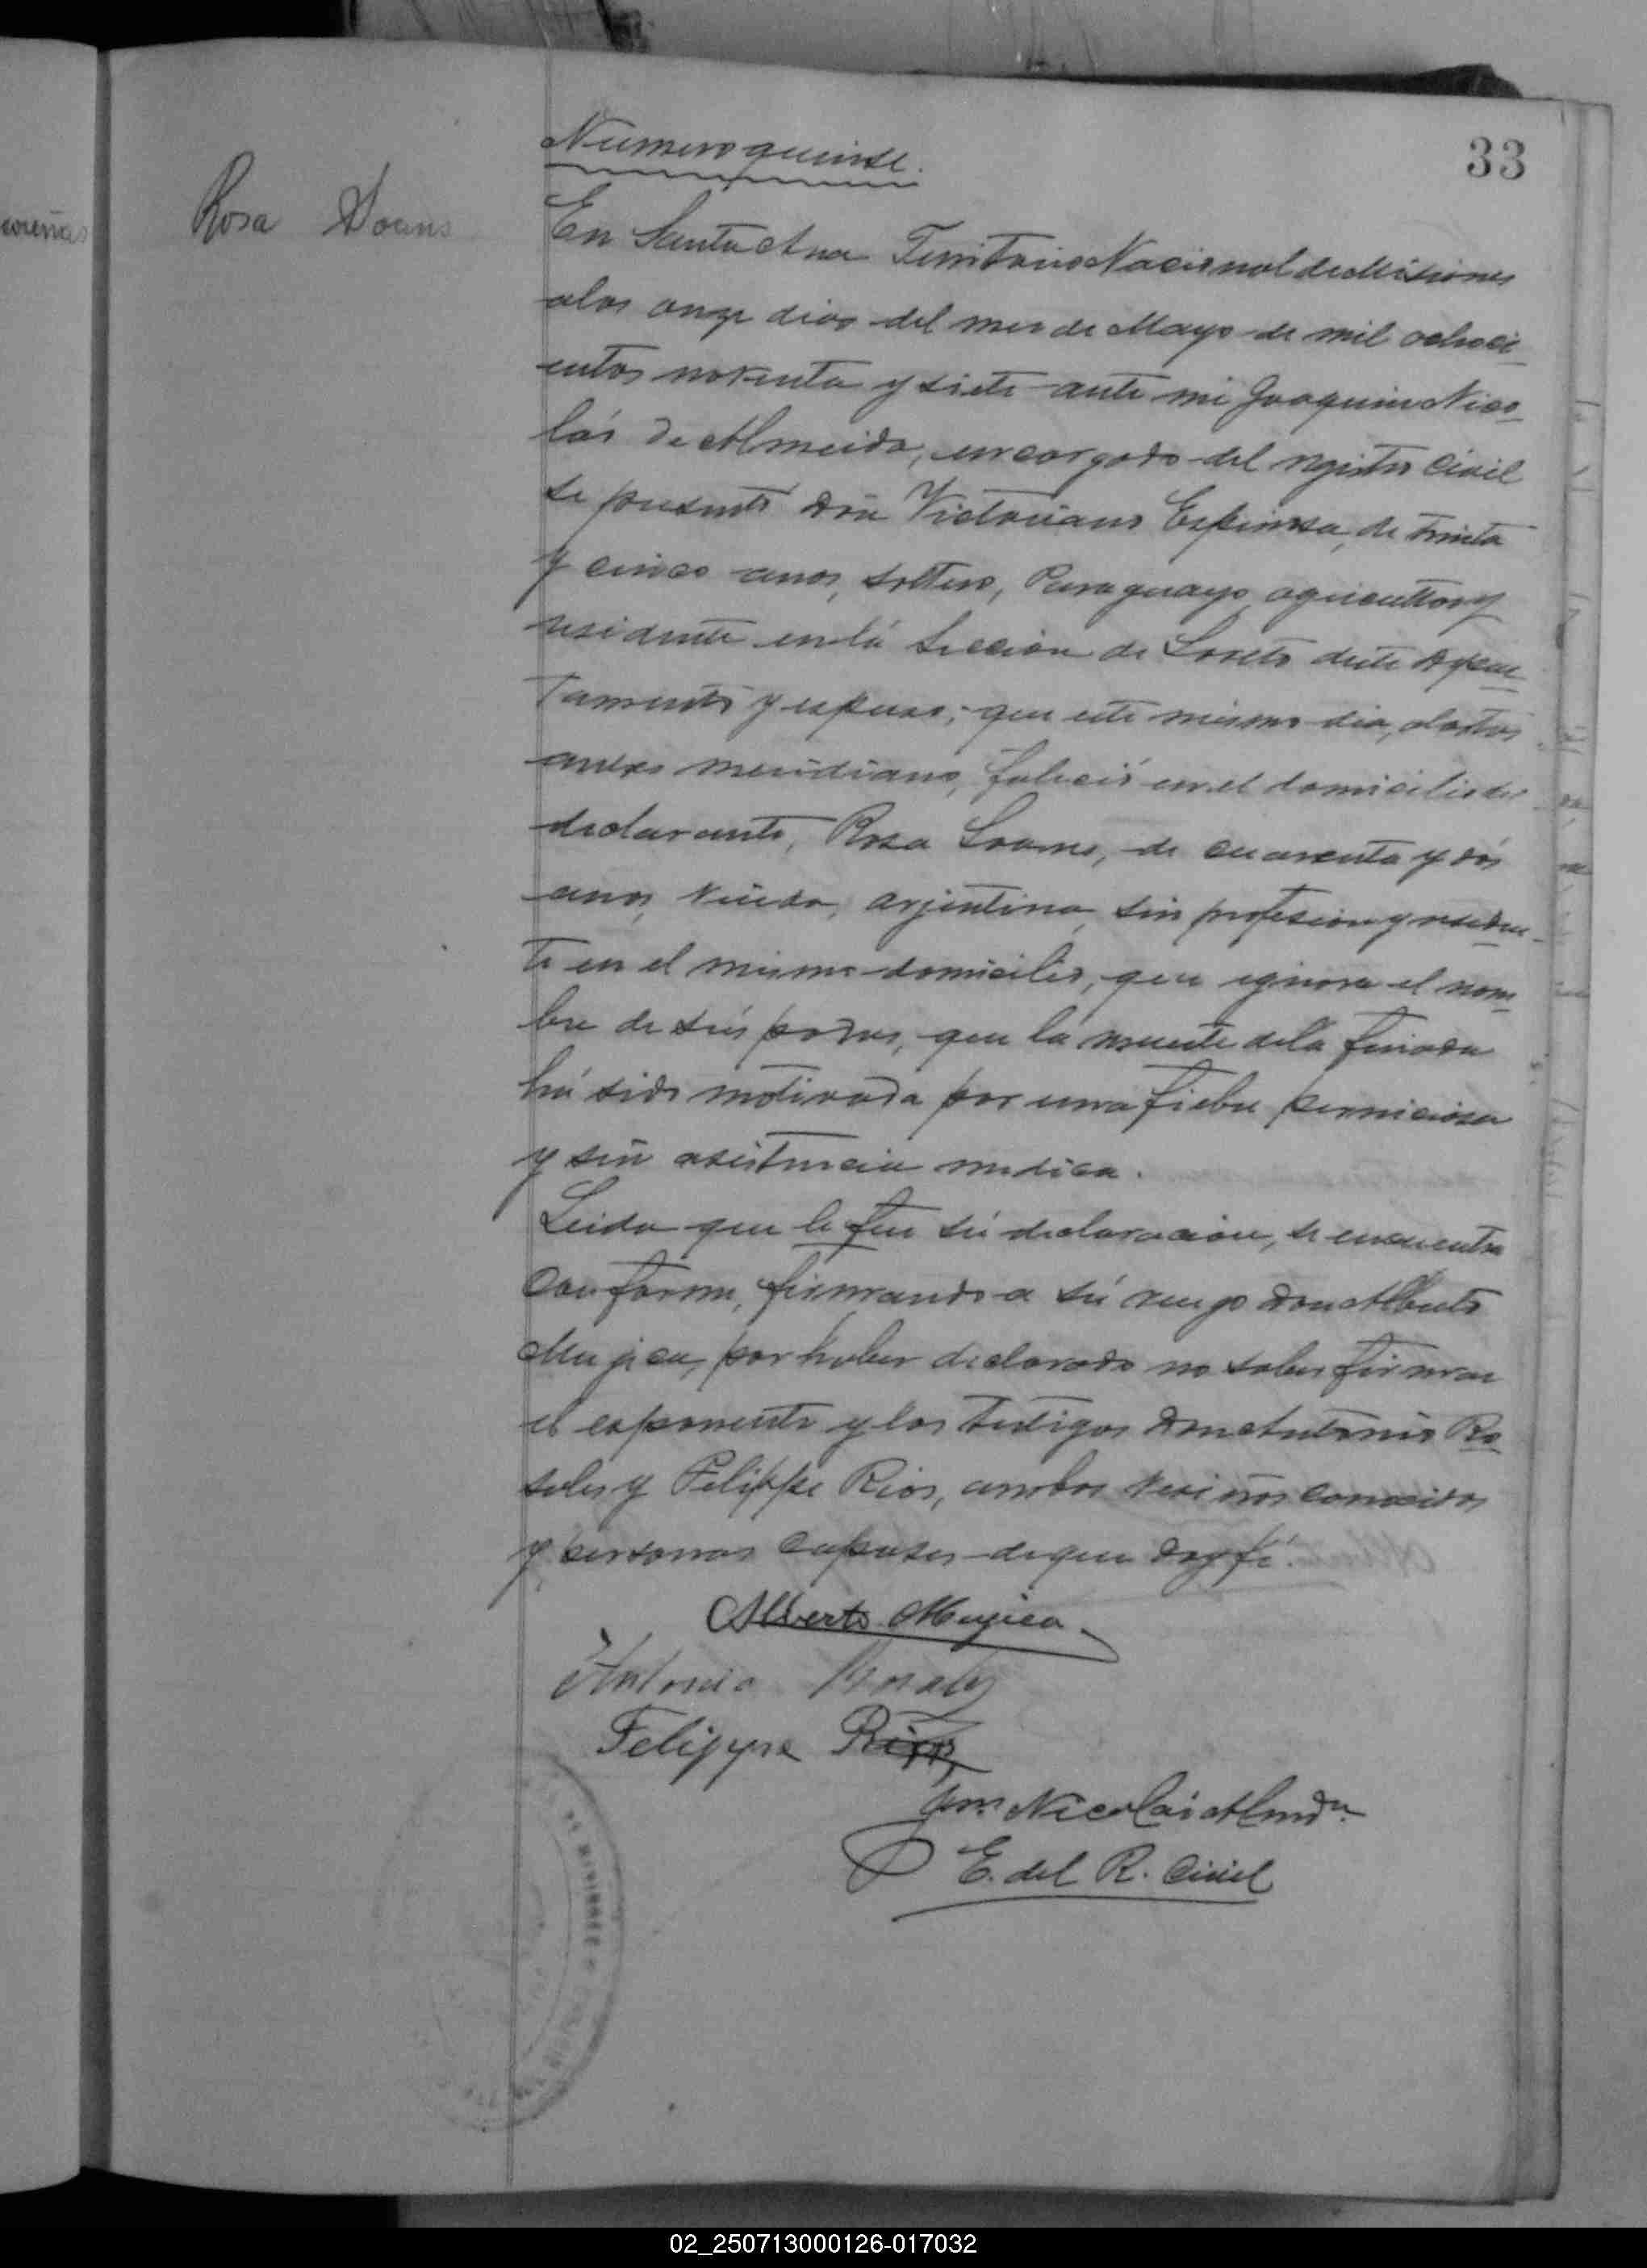 33
Numero quinse.
Rosa
En Santa Ana Territorio Nacional de Misiones
alos onze dias del mes de Mayo de mil ochoci-
entos noventa y siete ante mi Joaquin Nico-
lás de Almeida, encargado del registro Civil
se presentó Don Victoriano Espinosa, de trinta
y cinco anos, soltero, Paraguayo, agricultor y
residente en lá Seccion de Loreto deste Depar-
tamento y espuso; que este mismo dia, alas
meridiano, falleció en el domicilio del
declarante, Rosa de cuarenta y dós
anos, viuda, arjentina, sin profesion y residen-
te en el mismo domicilio, que ignora el nom-
bre de sús padres, que lá muerte delá finada
há sido motivada por una fiebre perniciosa
y sin asistencia medica.
Leida que le fue sú declaracion, se encuentra
Conforme, firmando a sú ruego Don Alberto
Mujica, por haber declarado no saber firmar
el esponente y los testigos Don Antonio Ro-
sales y Felippe Rios, ambos vesinos conocidos
y personas capases de que doy fé.
Alberto Mujica
Antonio Rosales
Felippe Rios
Jqm. Nicolás Almda.
E. del R. Civil
DE MINISTRO
02_250713000126-017032